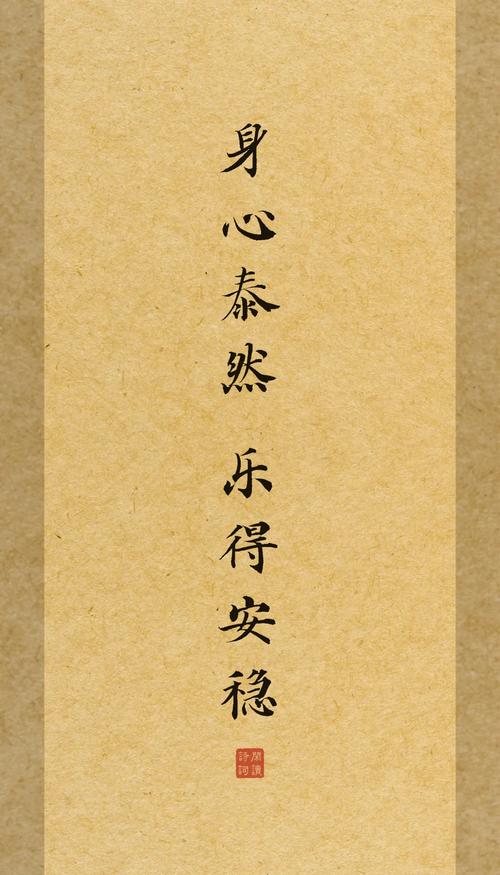 身心泰然 乐得安稳
閑讀詩詞